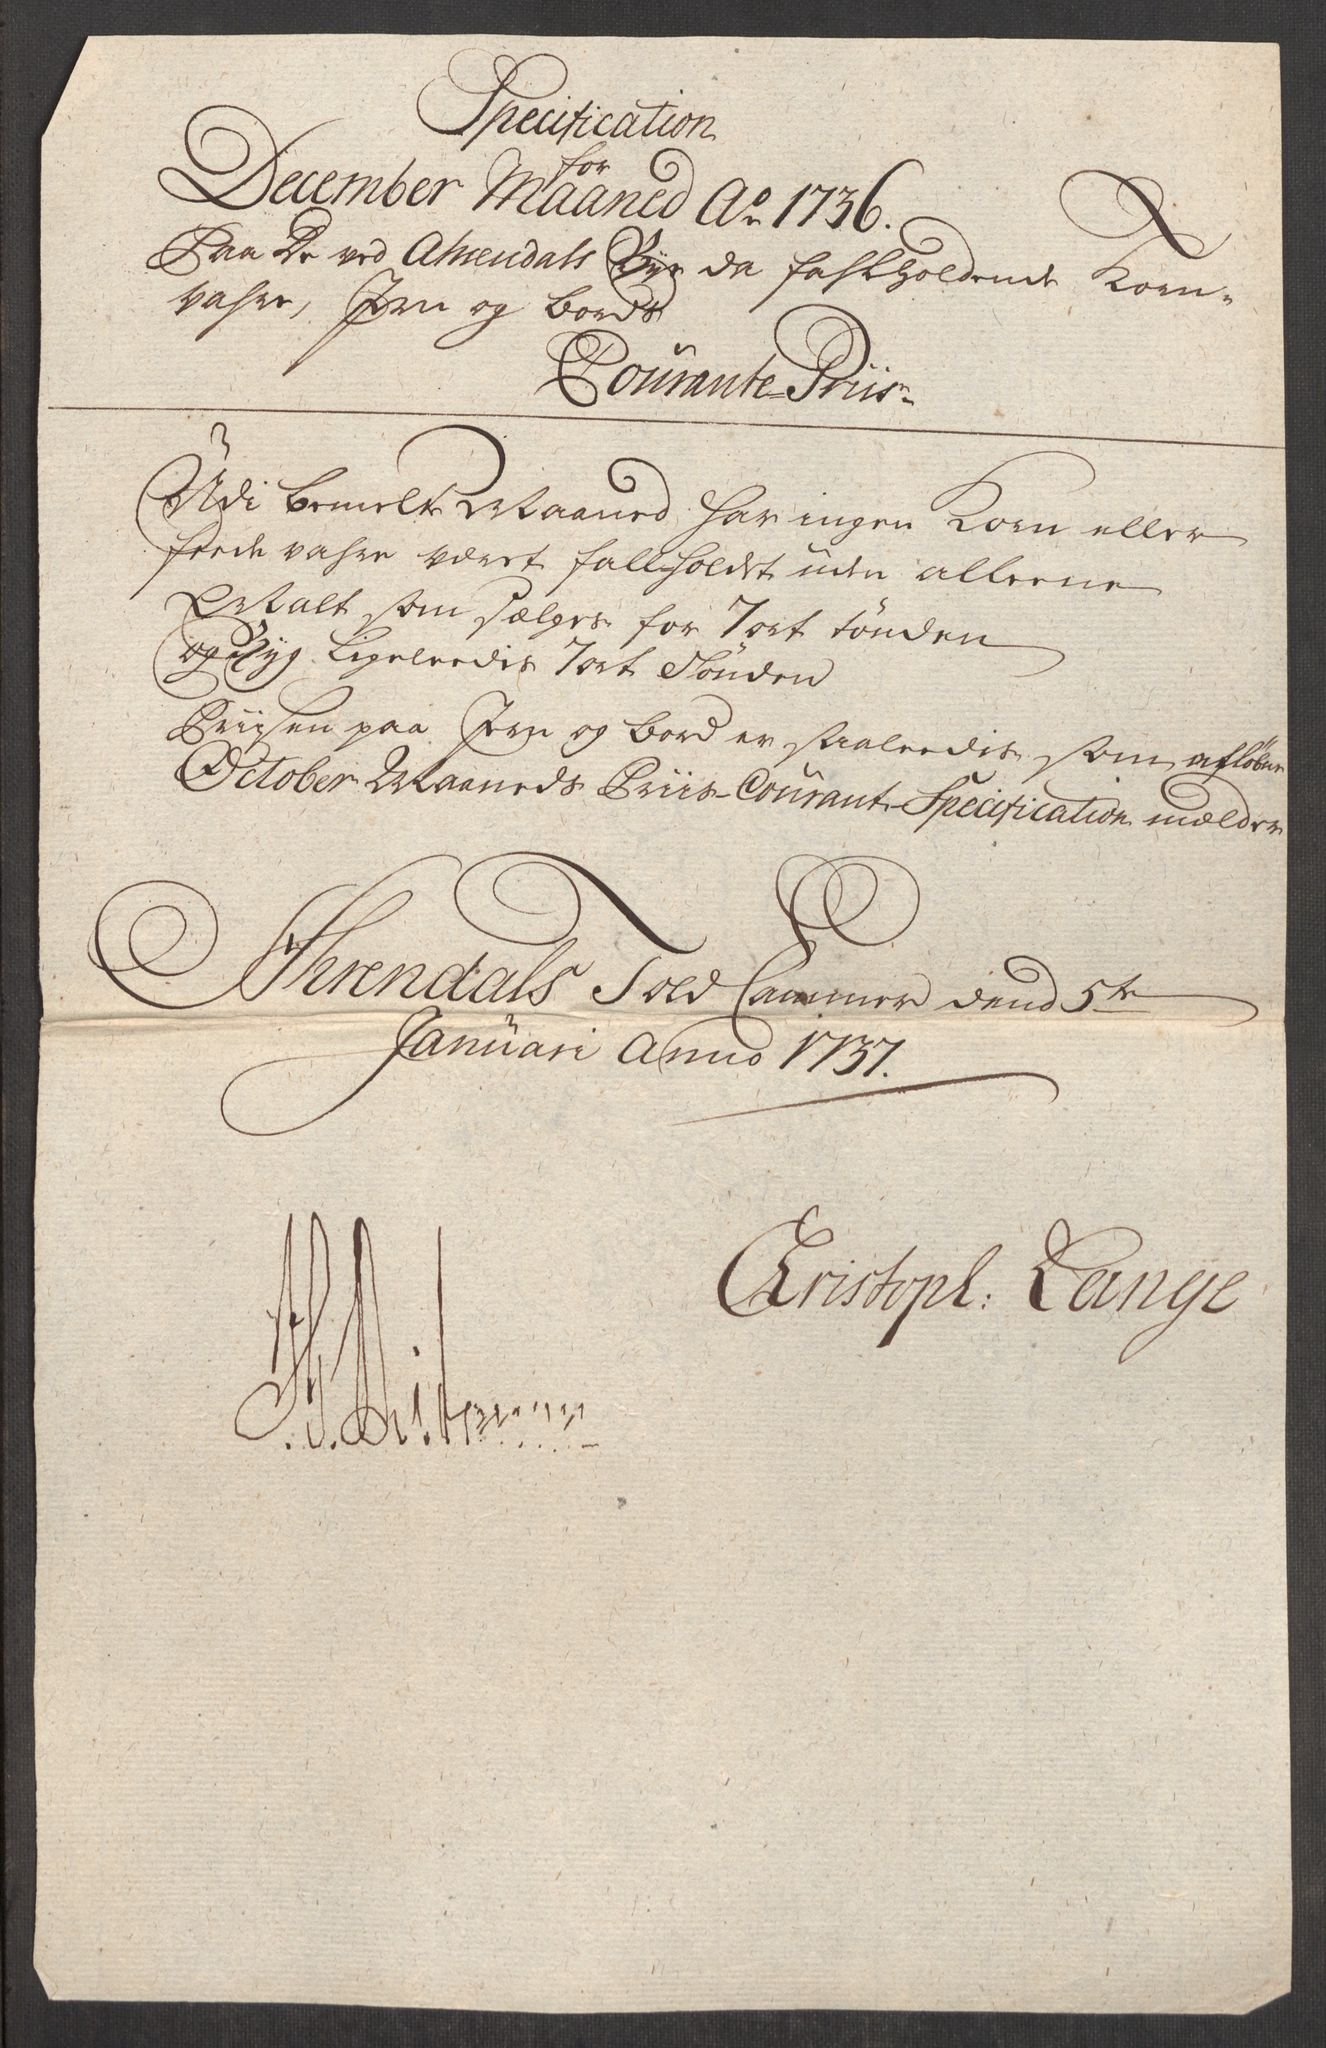 Specification
for
December Maaned Ao 1736.
Paa De ved Ahrendals Bye da fahlholdende Korn-
vahre, Jern og bords
Courante-Priis
Udi bemelte Maaned har ingen Korn eller
feede vahre været fallholdet uden alleene
Malt som sælges for 7 ort tønden
og Byg Ligeleedis 7 ort Tønden
Priisen paa Jern og bord er saaleedis som afløbne
October Maaneds Priis-Courant-Specification melder
Ahrendals Told Cammer dend 5te
Januari Anno 1737.
Christoph: Lange